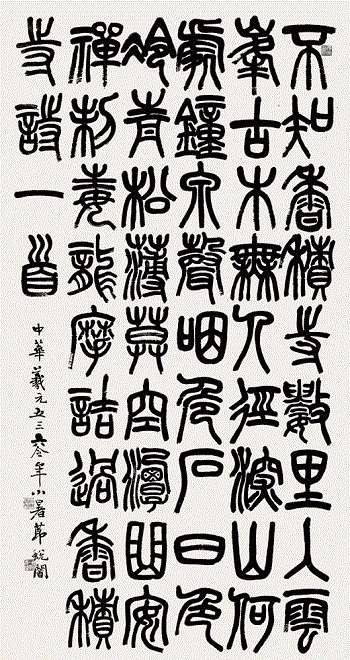 不知香積寺數里入雲
峯古木無人徑深山何
處鐘泉聲咽危石日色
冷青松薄莫空潭曲安
禪制毒龍摩詰過香積
寺詩一首
中華羲元五三六年小暑